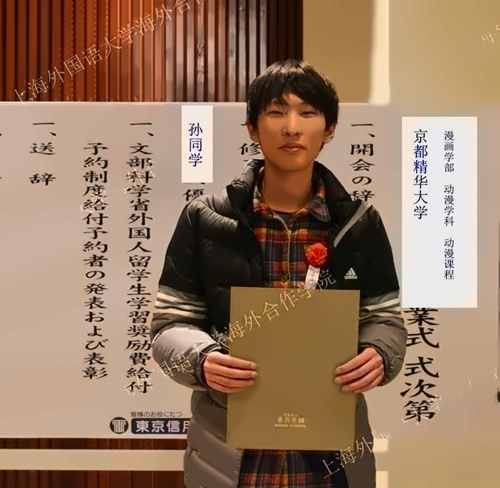 漫画学部　动漫学科　动漫课程
京都精华大学
孙同学
業式 式次第
一、開会の辞
修
優
一、文部科学省外国人留学生学習奨励費給付
予約制度給付予約者の発表および表彰
一、送　辞
一、
皆様のお役にたつ
東京信用
上海外国语大学海外合作
国语大学海外合作学院
上海外